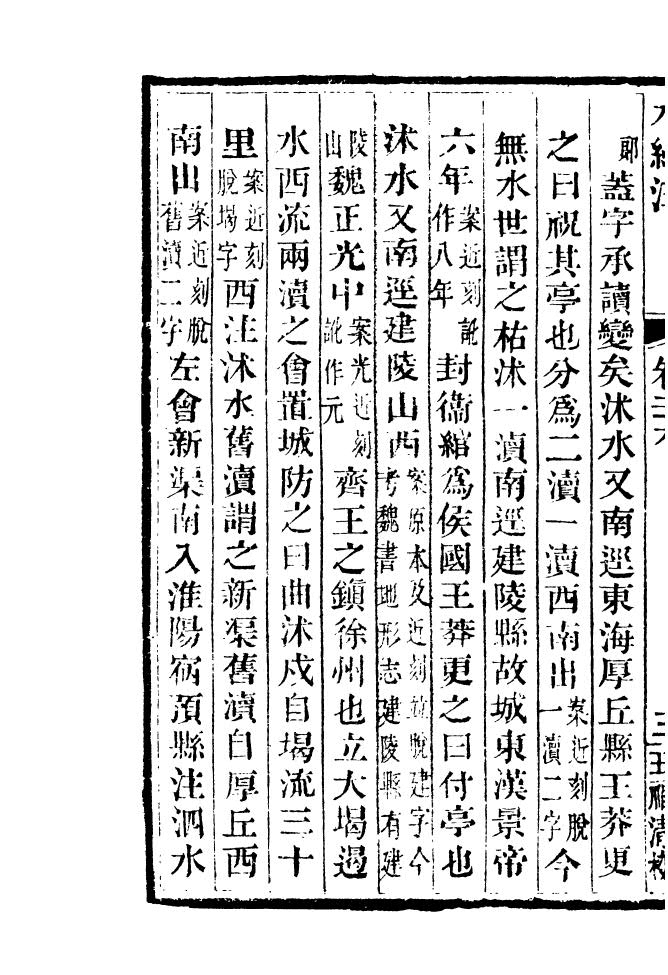 水經注 卷二十六 三 王福清校
郞蓋字承讀變矣沭水又南逕東海厚丘縣王莽更
之曰祝其亭也分爲二瀆一瀆西南出案近刻脫一瀆二字今
無水世謂之枯沭一瀆南逕建陵縣故城東漢景帝
六年案近刻訛作八年封衞綰爲侯國王莽更之曰付亭也
沭水又南逕建陵山西案原本及近刻竝脫建字今考魏書地形志建陵縣有建
陵山魏正光中案光近刻訛作元齊王之鎮徐州也立大堨遏
水西流兩瀆之會置城防之曰曲沭戍自堨流三十
里案近刻脫堨字西注沭水舊瀆謂之新渠舊瀆自厚丘西
南出案近刻脫舊瀆二字左會新渠南入淮陽宿預縣注泗水